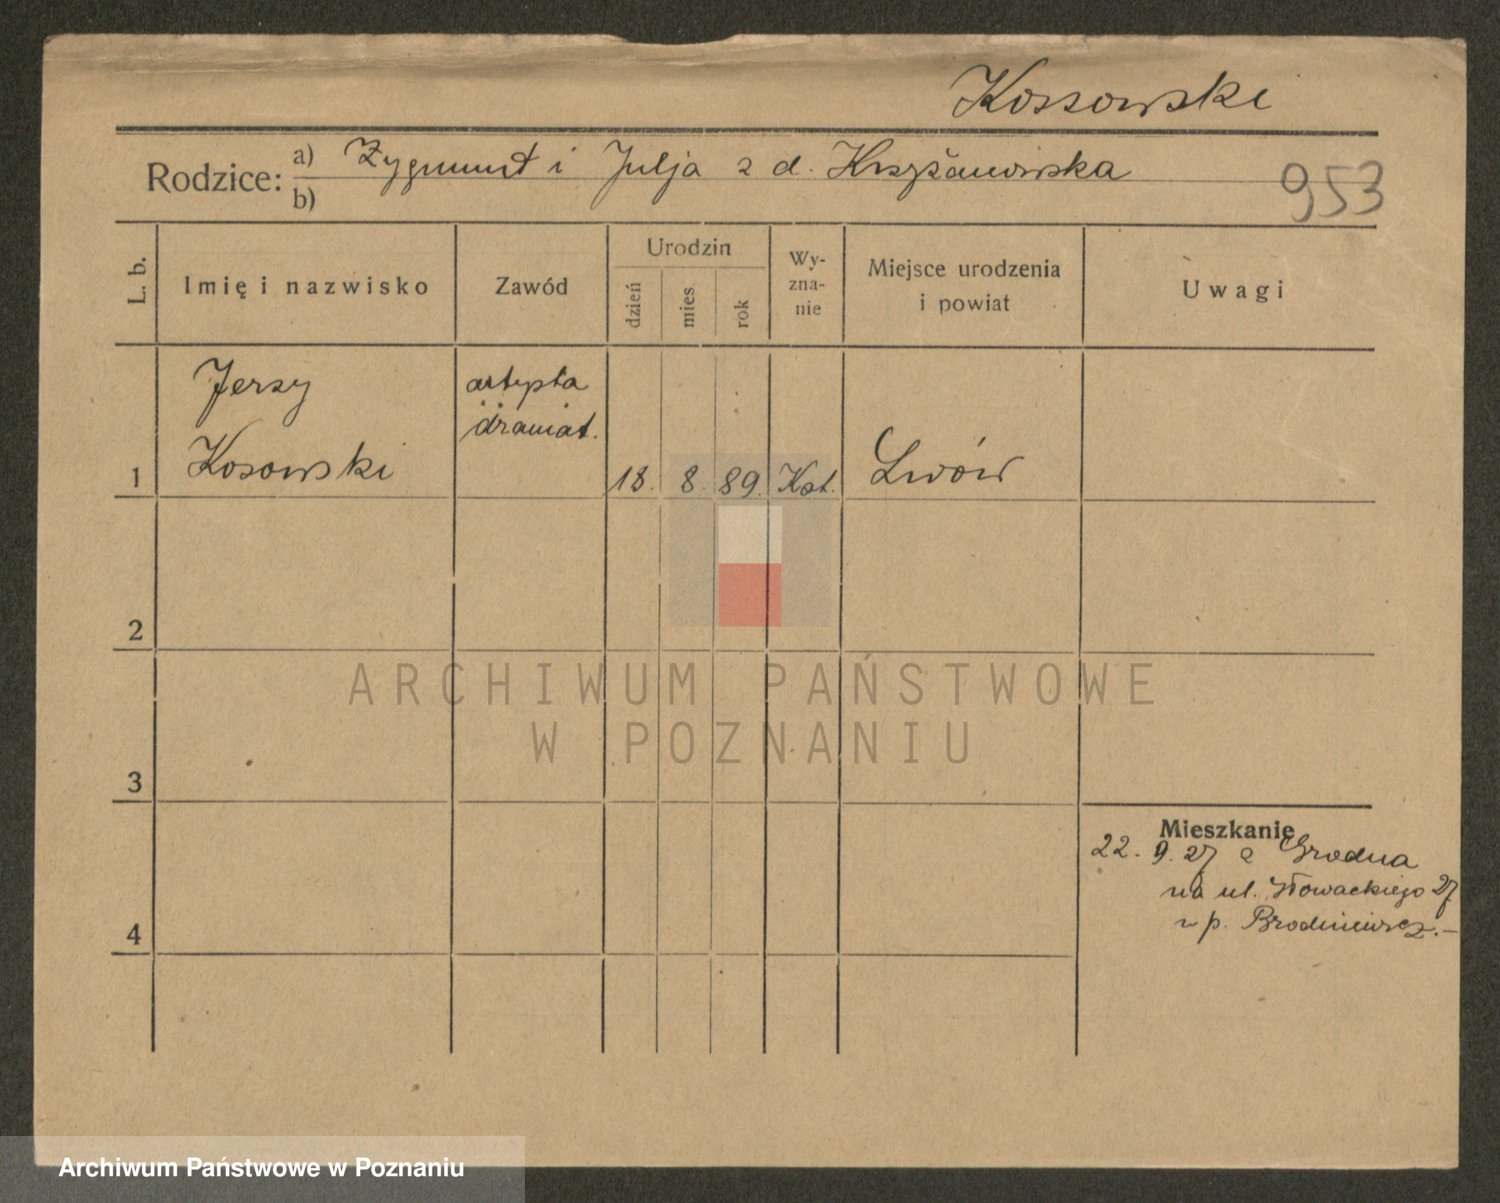 Kossowski
Rodzice: a) Zygmunt i Julja z d. Krzyżanowska
b)
953
L. b. Imię i nazwisko Zawód Urodzin dzień mies. rok Wyznanie Miejsce urodzenia i powiat Uwagi
Jerzy artysta
dramat.
1 Kosowski 18. 8. 89. Kat. Lwów
2
ARCHIWUM PAŃSTWOWE
W POZNANIU
3
Mieszkanie
22. 9. 27 z Grodna
na ul. Słowackiego 27
4 p.
Archiwum Państwowe w Poznaniu